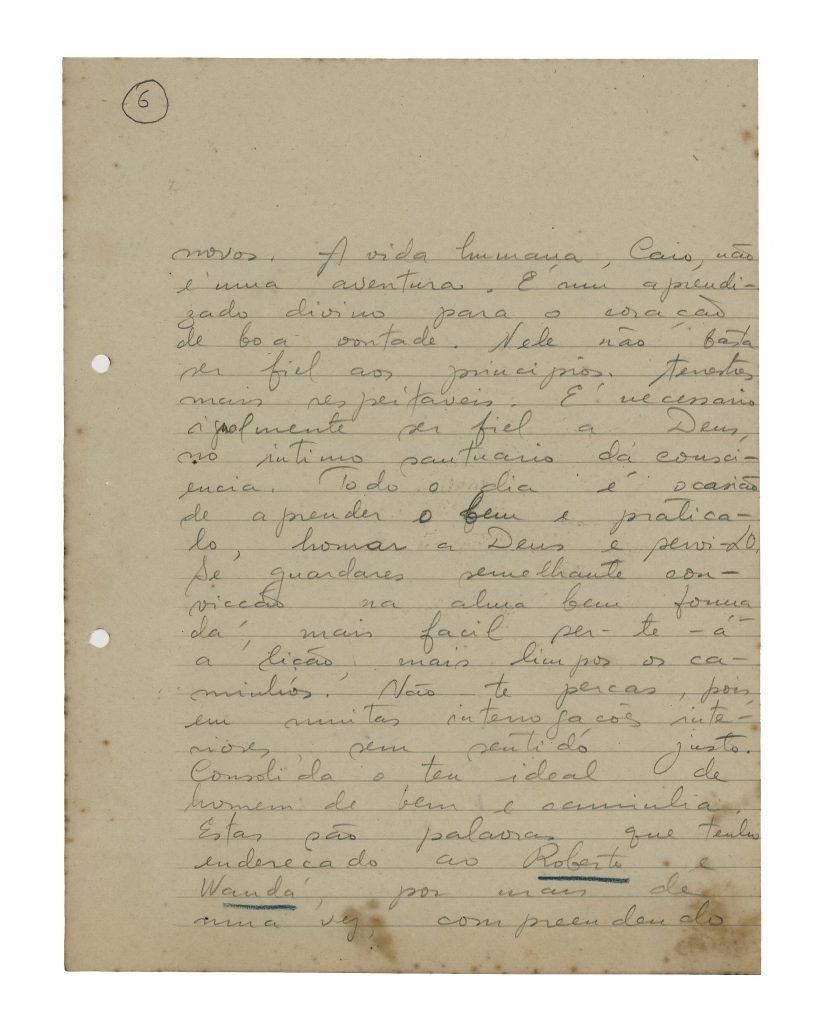 6
novos. A vida humana, Caio, não
é uma aventura. É um aprendi-
zado divino para o coração
de boa vontade. Nele não basta
ser fiel aos principios terrestres
mais respeitaveis. É necessario
igualmente ser fiel a Deus,
no intimo santuario da consci-
encia. Todo o dia é ocasião
de aprender o bem e pratica-
lo, honrar a Deus e servi-Lo.
Se guardares semelhante con-
vicção na alma bem forma
da, mais facil ser-te-á
a lição, mais limpos os ca-
minhos. Não te percas, pois
em muitas interrogações inte-
riores sem sentido justo.
Consolida o teu ideal de
homem de bem e caminha.
Estas são palavras que tenho
endereçado ao Roberto e
Wanda, por mais de
uma vez, compreendendo